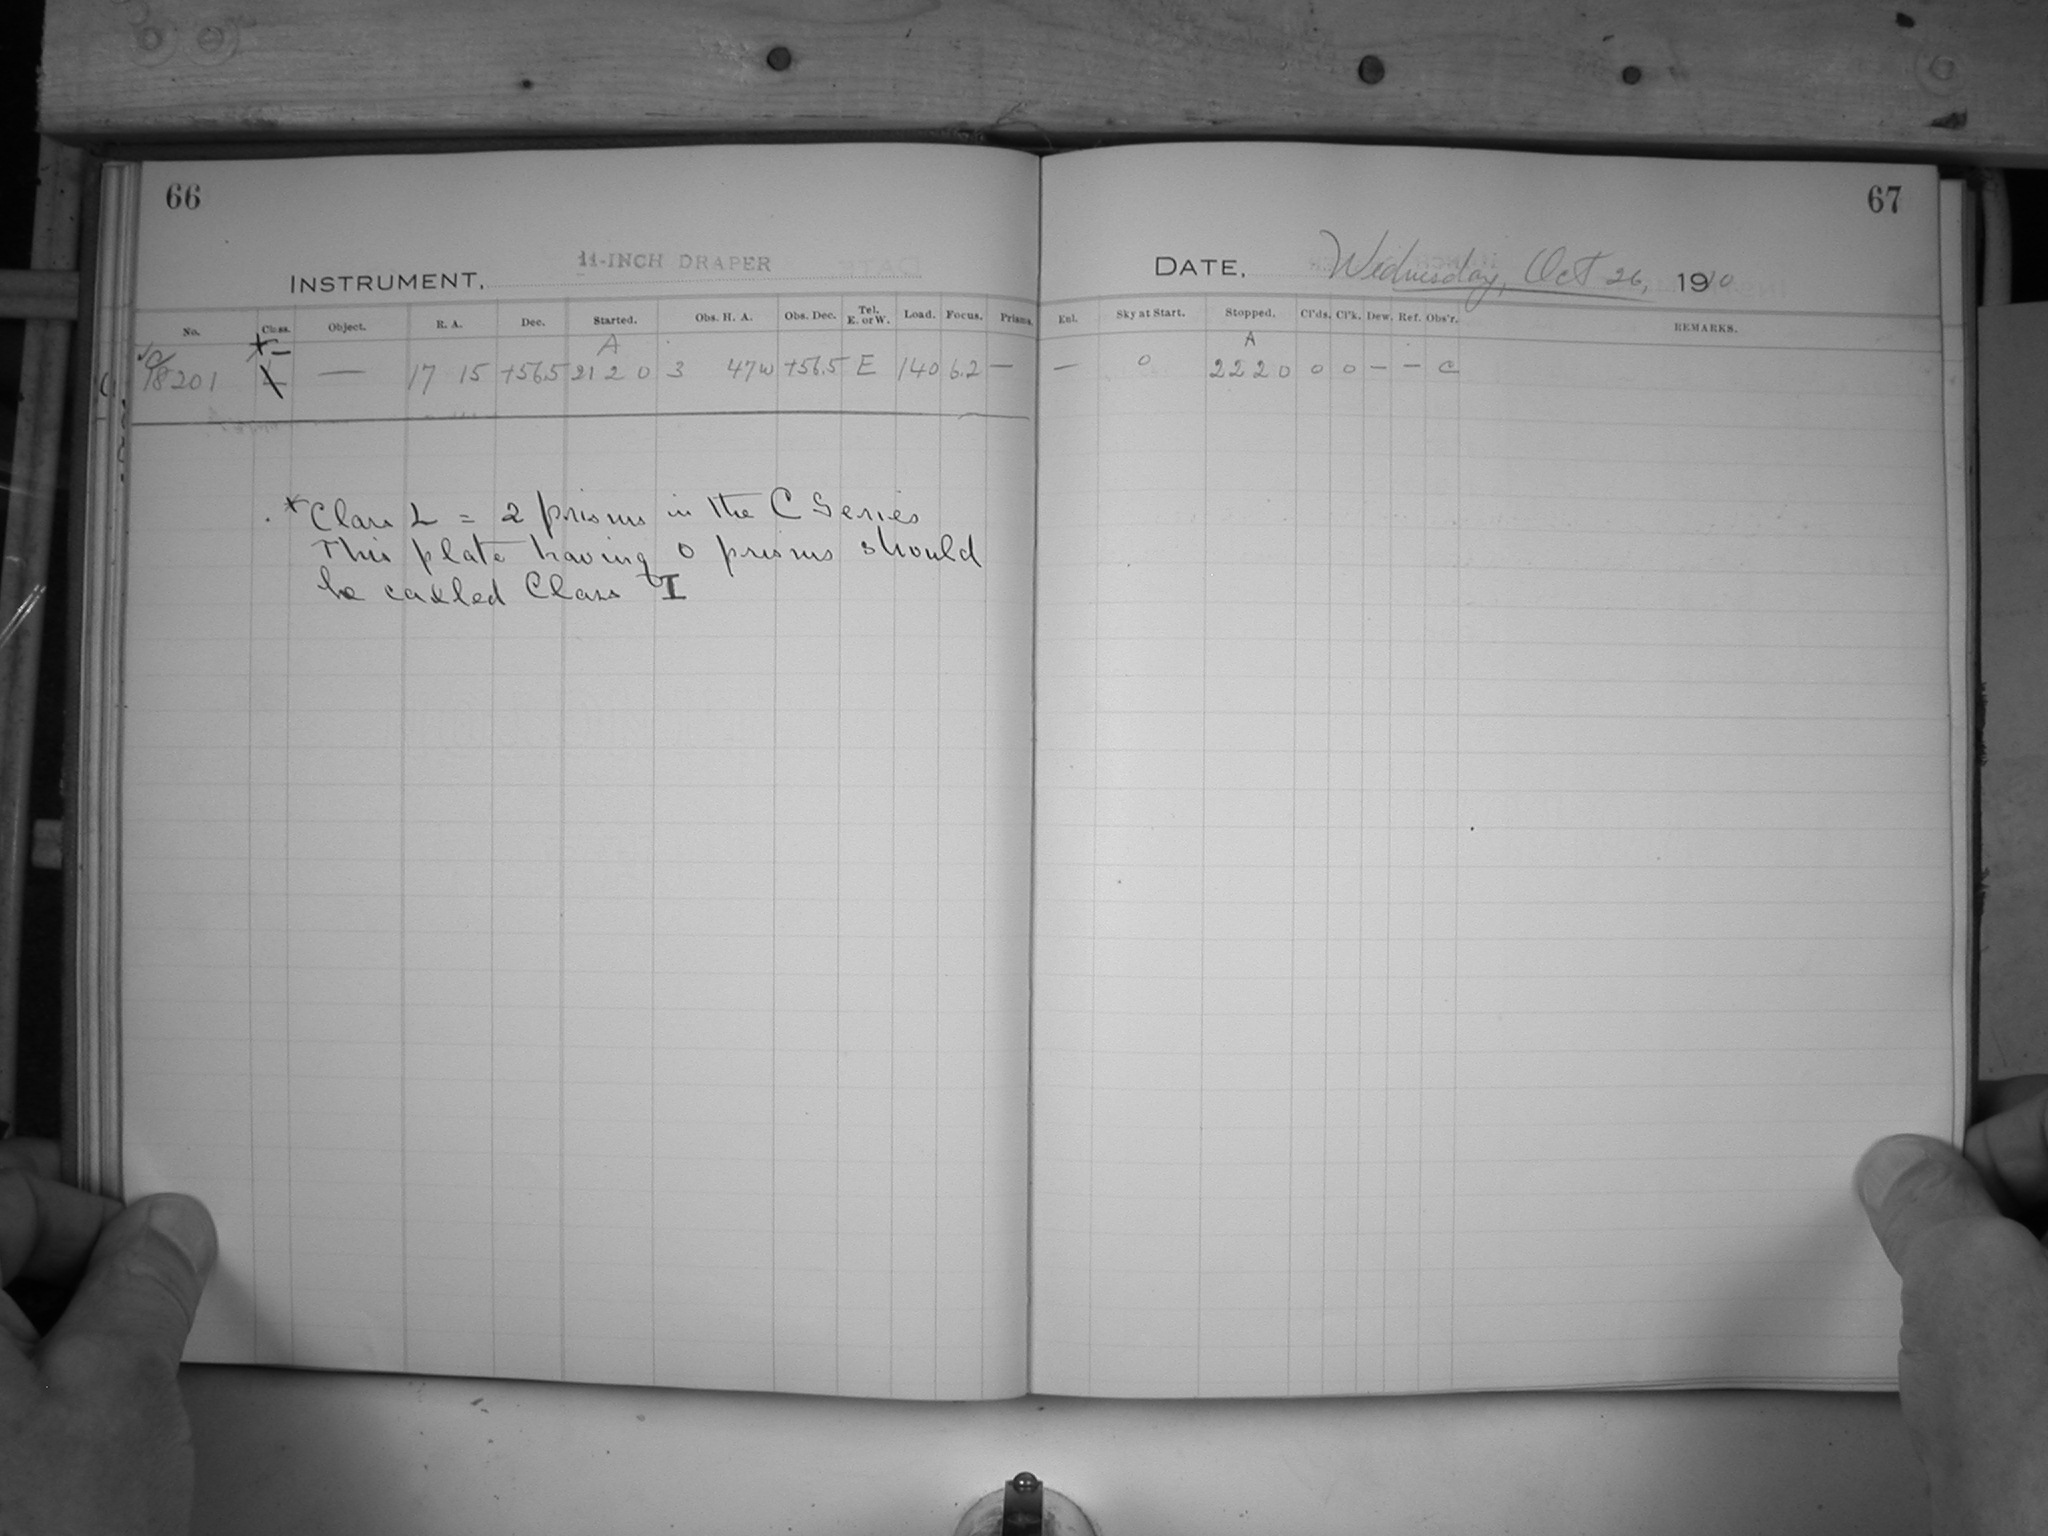 66
INSTRUMENT, 11-INCH DRAPER
No. Class. Object. R. A. Dec. Started. Obs. H. A. Obs. Dec. Tel. E. or W. Load. Focus. Prisms.
A
18201 L — 17 15 +56.5 21 2 0 3 47w +56.5 E 140 6.2 —
*Class L = 2 prisms in the C Series
This plate having 0 prisms should
be called Class I
67
DATE, Wednesday, Oct 26, 1910
Enl. Sky at Start. Stopped. Cl'ds. Cl'k. Dew. Ref. Obs'r. REMARKS.
A
— 0 22 2 0 0 0 — — C